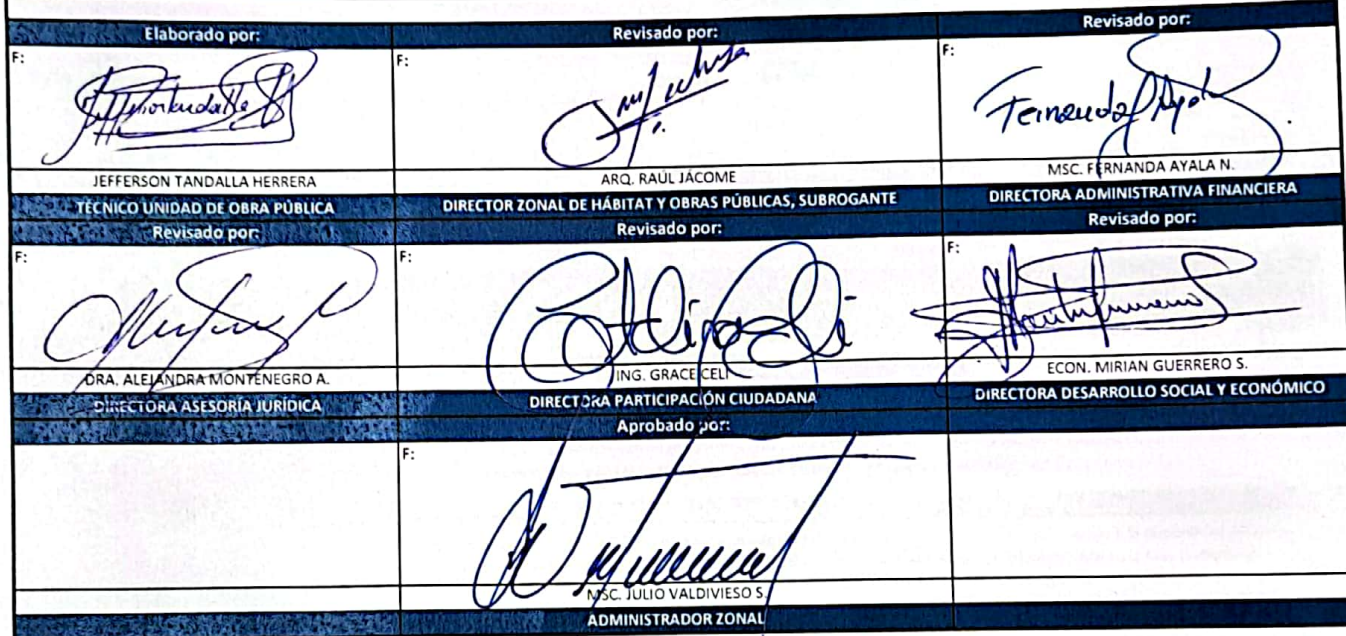 Elaborado por:
Revisado por:
Revisado por:
F:
F:
F:
Fernanda Ayala
JEFFERSON TANDALLA HERRERA
ARQ. RAÚL JÁCOME
MSC. FERNANDA AYALA N.
TÉCNICO UNIDAD DE OBRA PÚBLICA
DIRECTOR ZONAL DE HÁBITAT Y OBRAS PÚBLICAS, SUBROGANTE
DIRECTORA ADMINISTRATIVA FINANCIERA
Revisado por:
Revisado por:
Revisado por:
F:
F:
F:
DRA. ALEJANDRA MONTENEGRO A.
ING. GRACE CELI
ECON. MIRIAN GUERRERO S.
DIRECTORA ASESORÍA JURÍDICA
DIRECTORA PARTICIPACIÓN CIUDADANA
DIRECTORA DESARROLLO SOCIAL Y ECONÓMICO
Aprobado por:
F:
MSC. JULIO VALDIVIESO S.
ADMINISTRADOR ZONAL